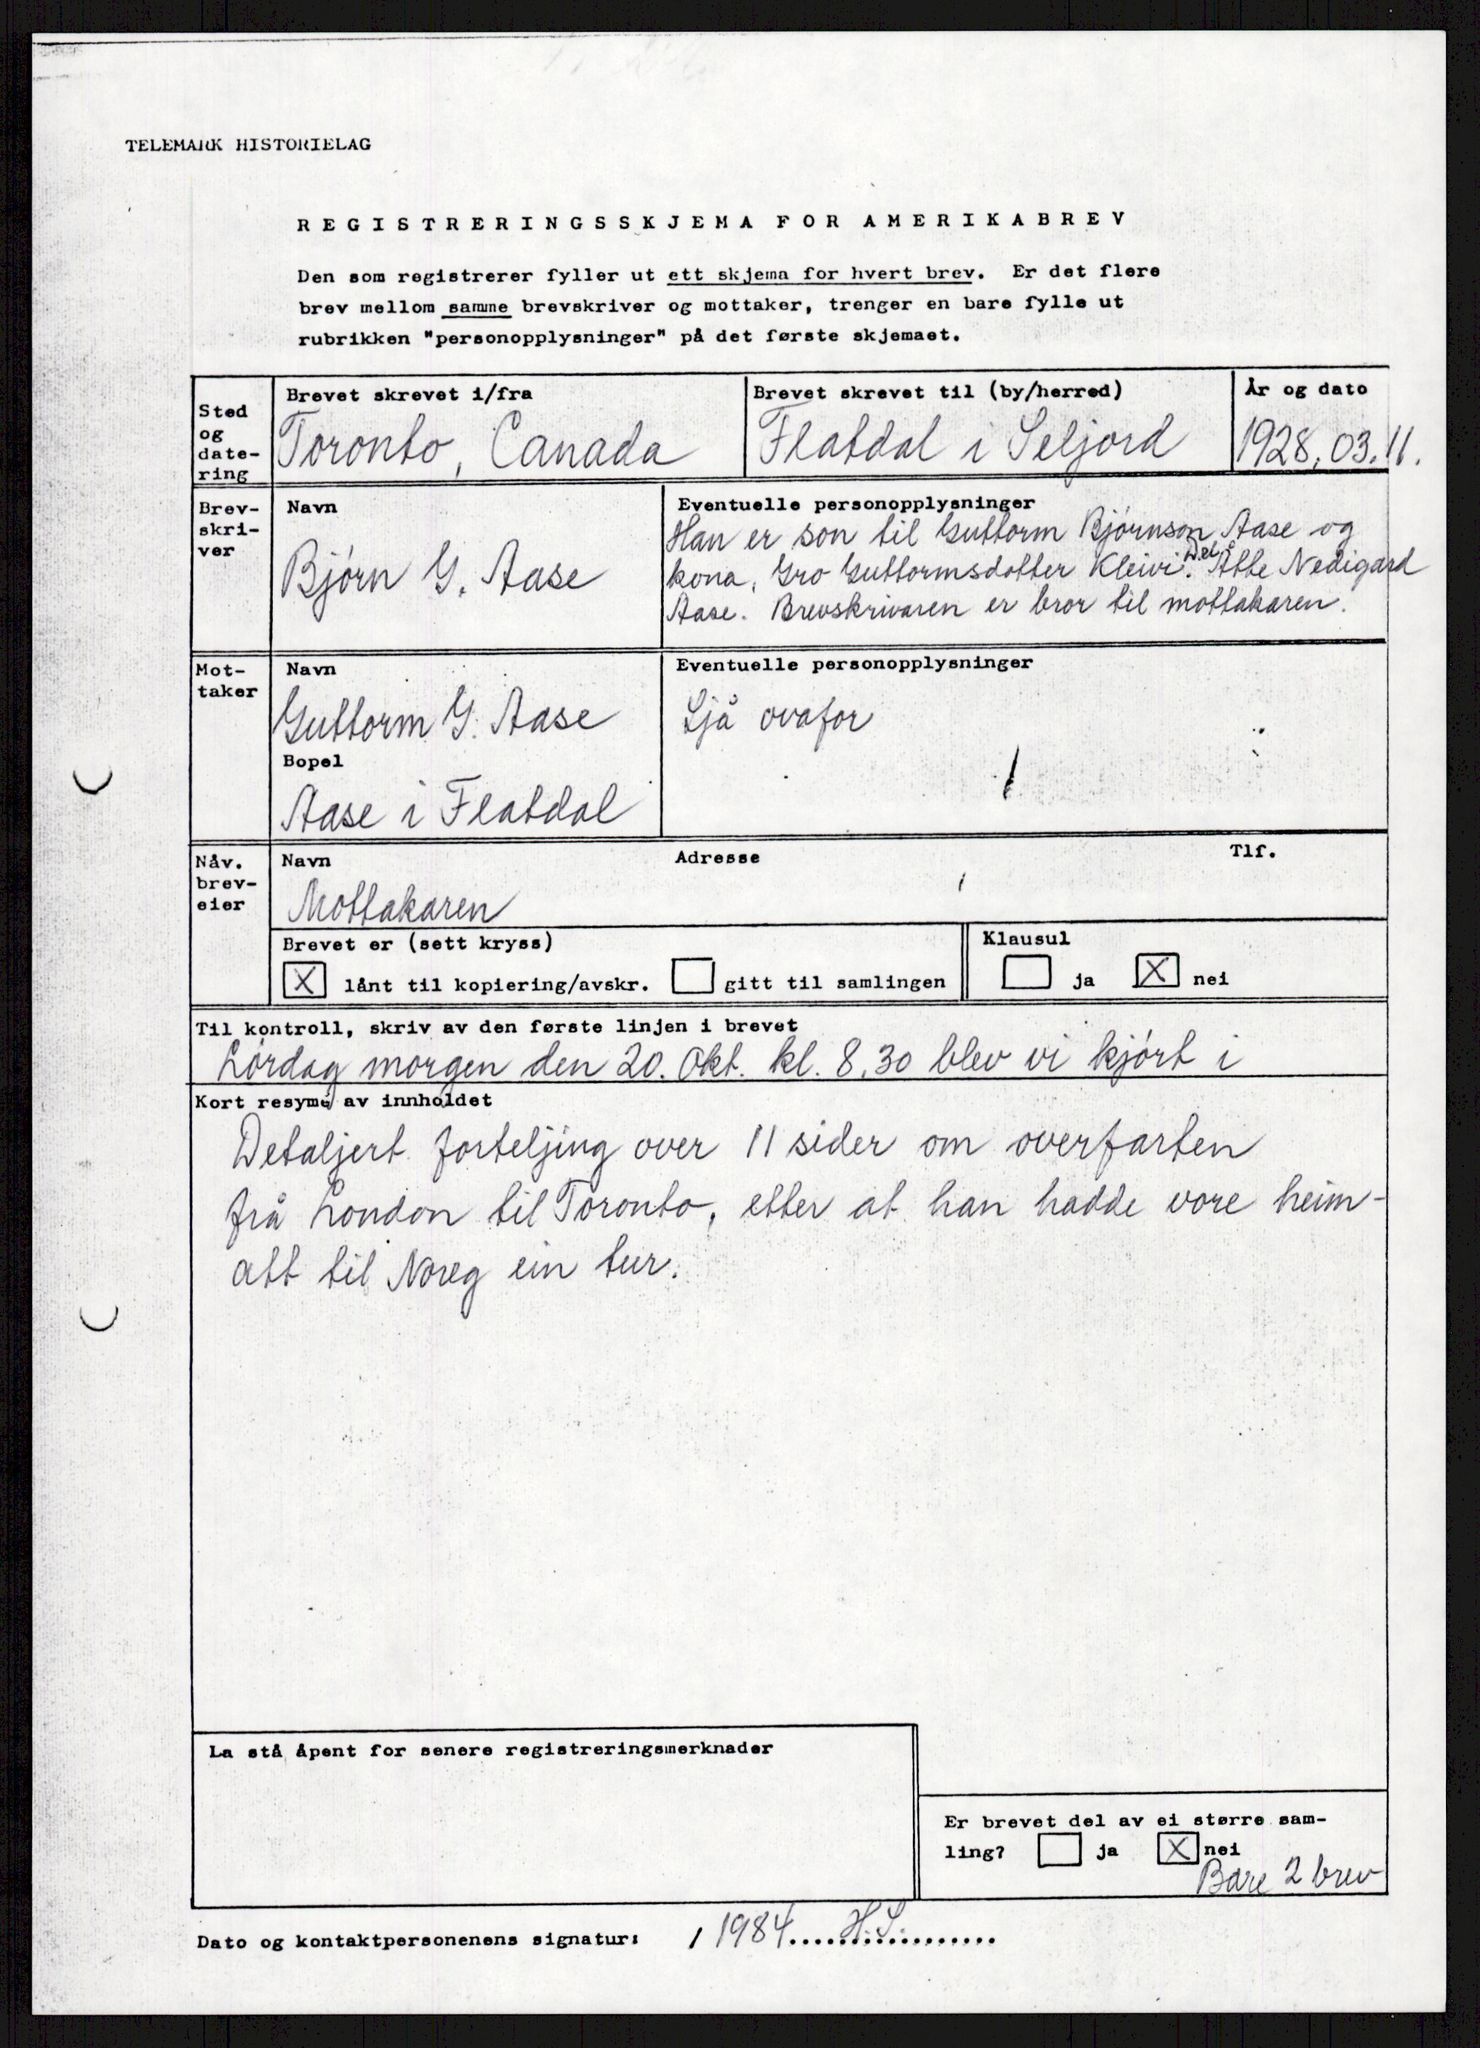 TELEMARK HISTORIELAG
REGISTRERINGSSKJEMA FOR AMERIKABREV
Den som registrerer fyller ut ett skjema for hvert brev. Er det flere
brev mellom samme brevskriver og mottaker, trenger en bare fylle ut
rubrikken "personopplysninger" på det første skjemaet.
Sted
og
date-
ring
Brevet skrevet i/fra
Toronto, Canada
Brevet skrevet til (by/herred)
Flatdal i Seljord
År og dato
1928.03.11.
Brev-
skri-
ver
Navn
Bjørn G. Aase
Eventuelle personopplysninger
Han er son til Guttorm Bjørnson Aase og
kona, Gro Guttormsdotter Kleivi. Dei åtte Nedigard
Aase. Brevskrivaren er bror til mottakaren.
Mot-
taker
Navn
Guttorm G. Aase
Bopel
Aase i Flatdal
Eventuelle personopplysninger
Sjå ovafor
Nåv.
brev-
eier
Navn
Mottakaren
Adresse
Tlf.
Brevet er (sett kryss)
X lånt til kopiering/avskr. gitt til samlingen
Klausul
ja X nei
Til kontroll, skriv av den første linjen i brevet
Lørdag morgen den 20. Okt. kl. 8,30 blev vi kjørt i
Kort resymé av innholdet
Detaljert forteljing over 11 sider om overfarten
frå London til Toronto, etter at han hadde vore heim-
att til Noreg ein tur.
La stå åpent for senere registreringsmerknader
Er brevet del av ei større sam-
ling? ja X nei
Bare 2 brev
Dato og kontaktpersonenens signatur: / 1984....H.S.................